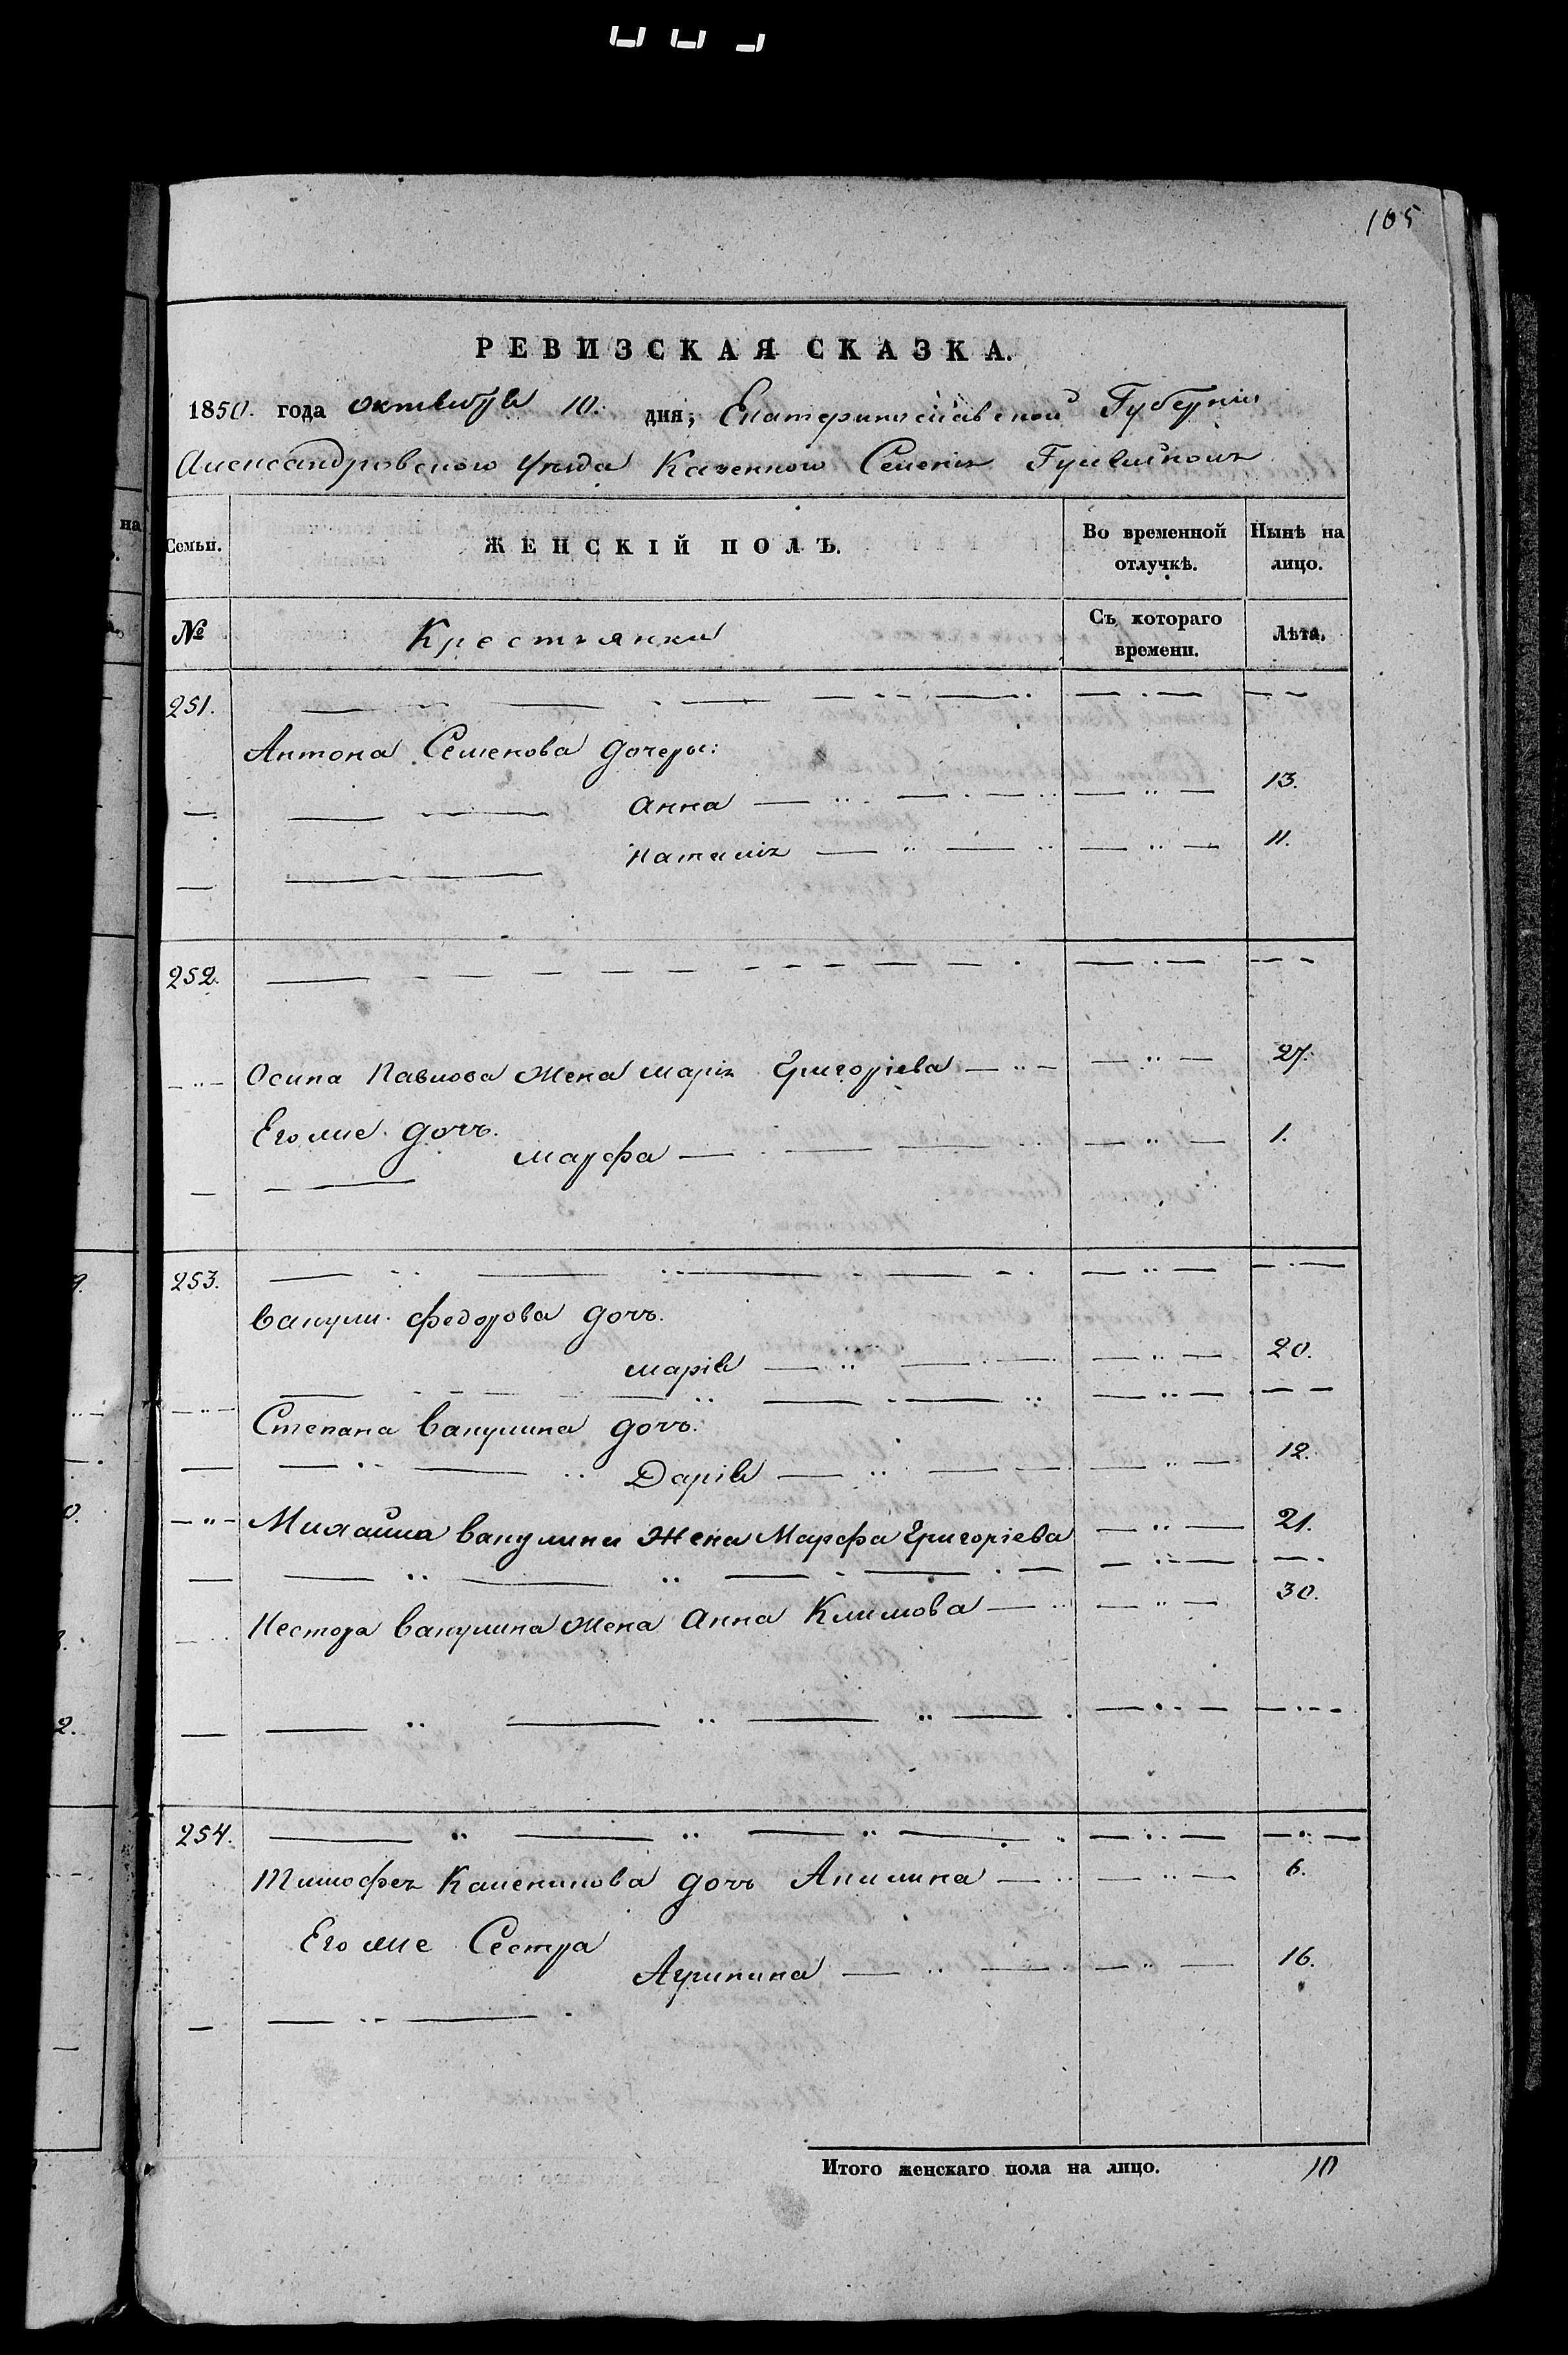 105
РЕВИЗСКАЯ СКАЗКА.
1850. года октября 10. дня, Екатеринославской Губерніи
Александровского уезда Казенного Селенія Гуляйполя
Семьи. ЖЕНСКІЙ ПОЛЪ. Во временной отлучкѣ. Нынѣ на лицо.
№ Крестьянки Съ котораго времени. Лѣта.
251.
Антона Семенова дочери:
Анна 13.
Наталія 11.
252.
Осипа Павлова жена Марія Григоріева 27.
Его же дочь.
Марфа 1.
253.
Вакулы Федорова дочь.
Марія 20.
Степана Вакулина дочь.
Дарія 12.
Михайла Вакулина жена Марфа Григоріева 21.
Нестора Вакулина жена Анна Климова 30.
254.
Тимофея дочь Акилина 6.
Его же Сестра
Агрипина 16.
Итого женскаго пола на лицо. 10